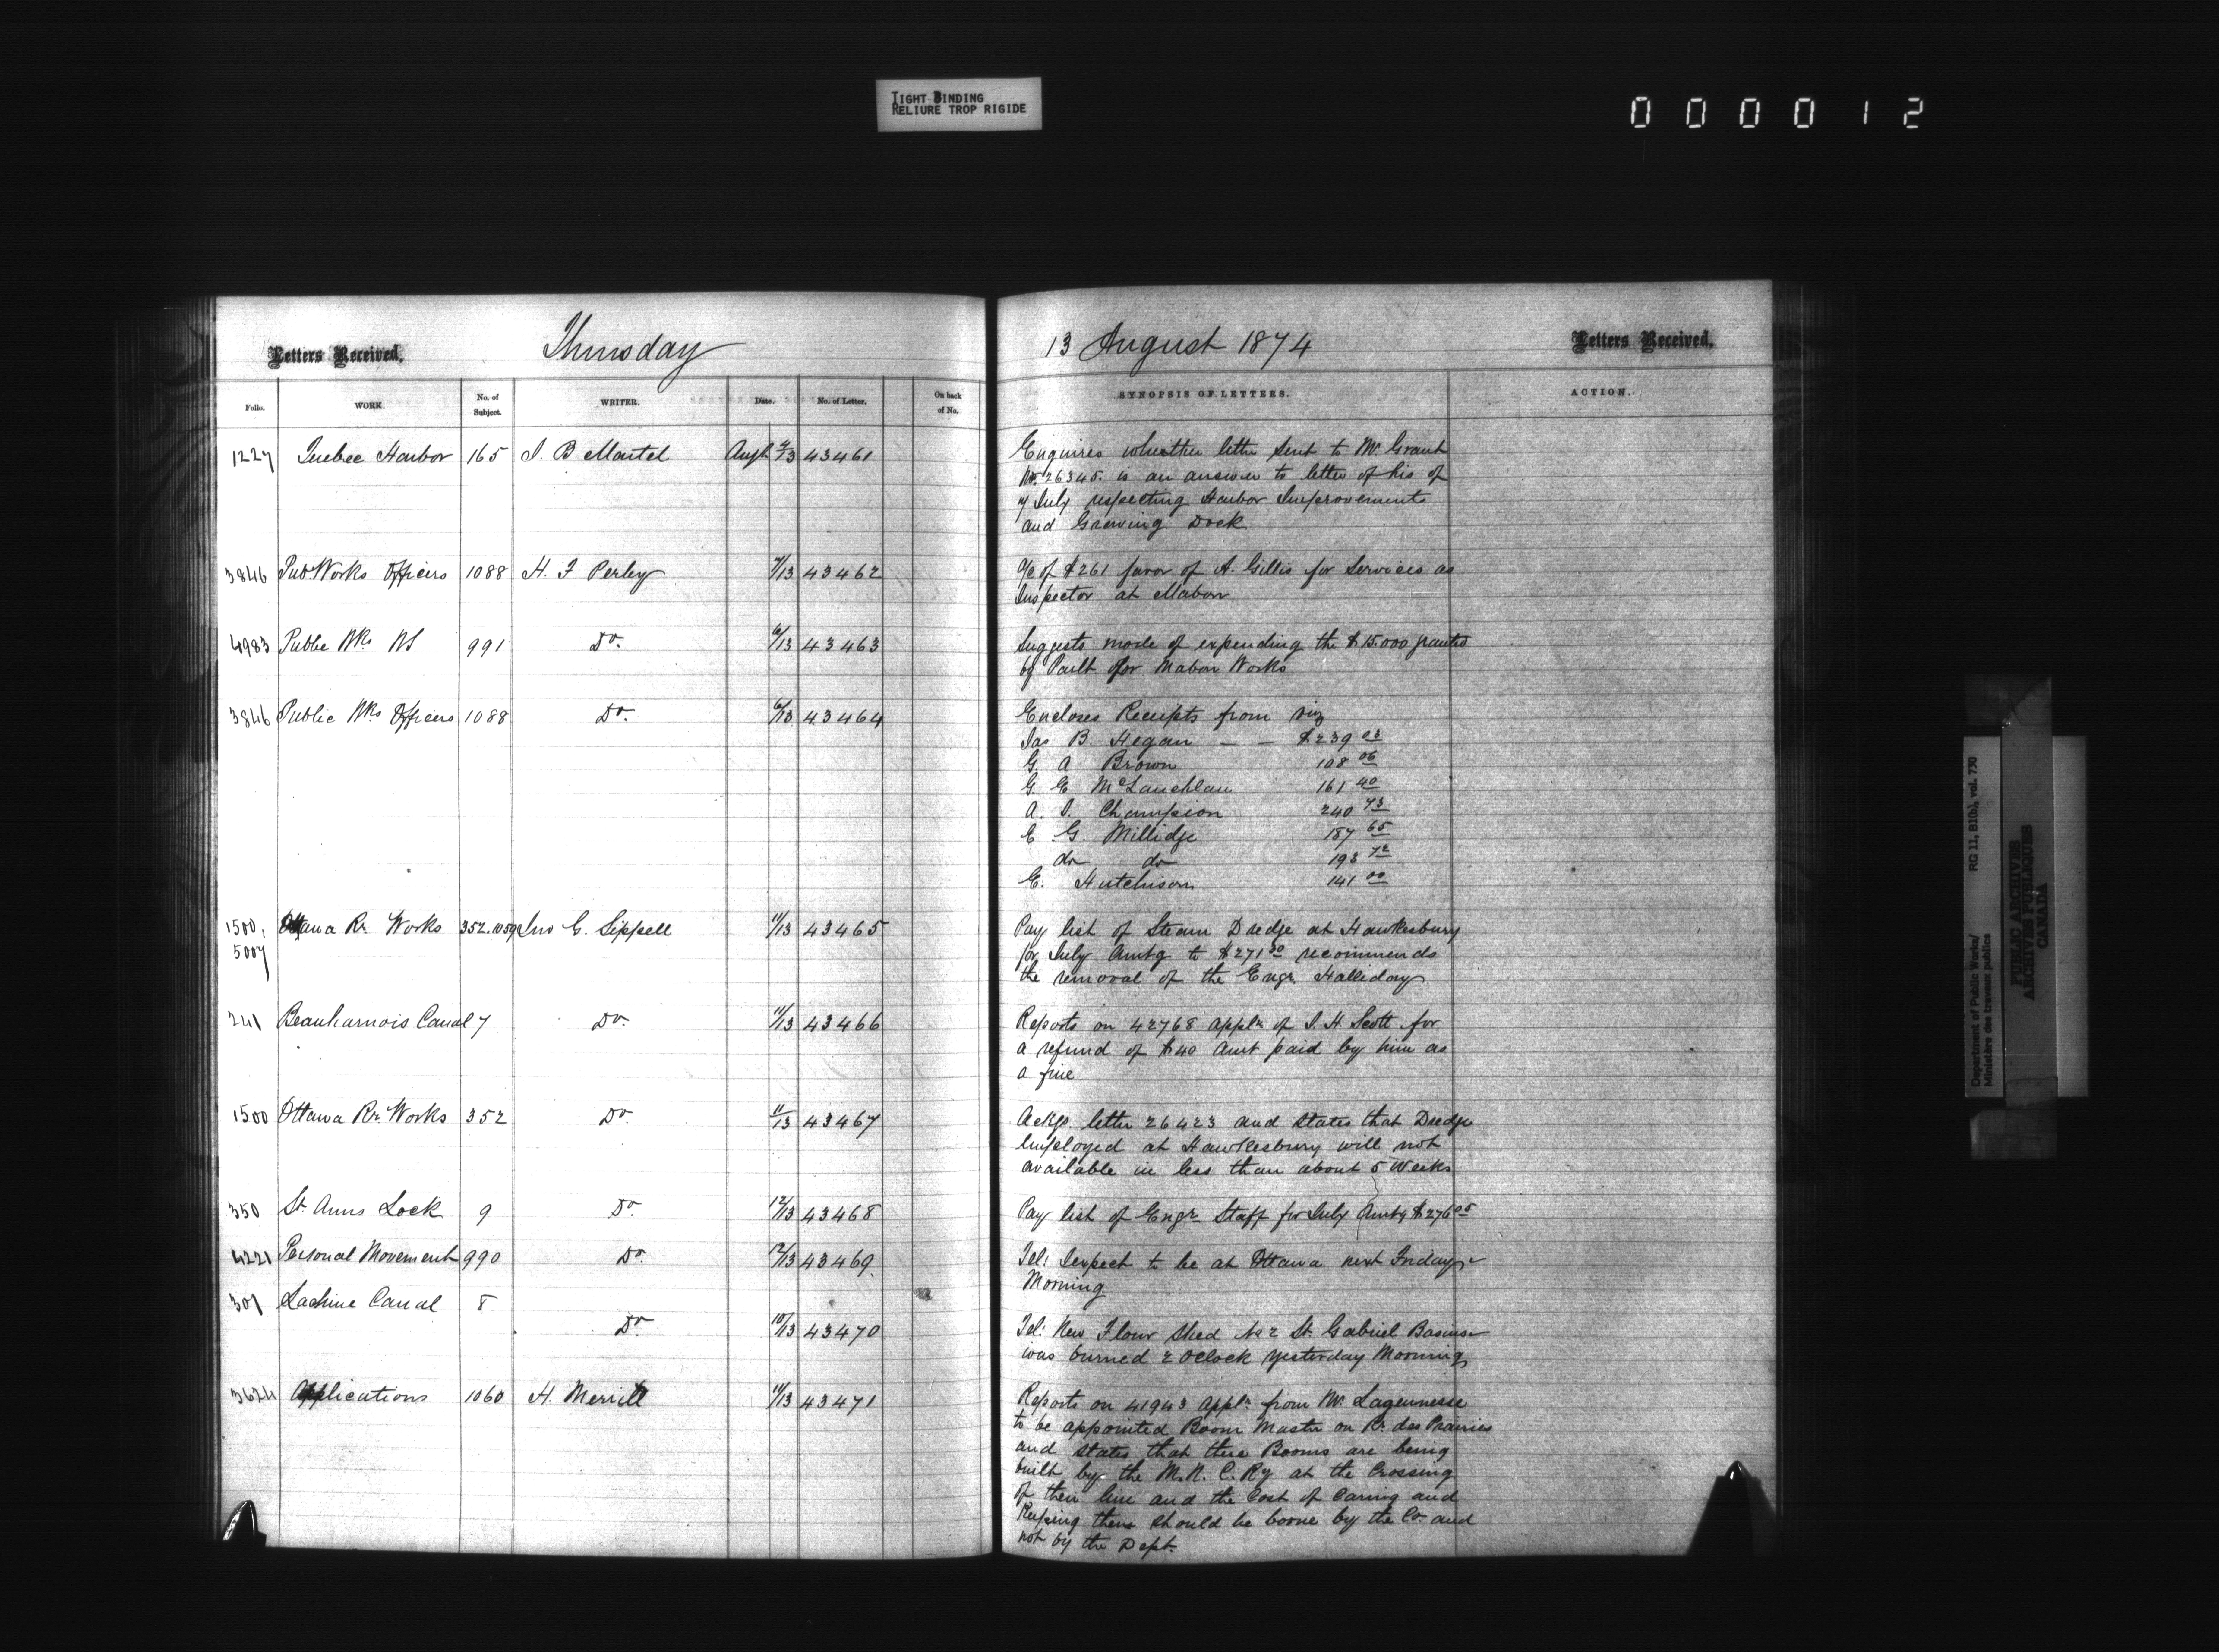 TIGHT BINDING
RELIURE TROP RIGIDE
000012
Letters Received.
Thursday
Folio.
WORK.
No. of Subject.
WRITER.
Date.
No. of Letter.
On back of No.
1227 Quebec Harbor 165 J. B Martel Augt 4/13 43461
3846 Pub Works Officers 1088 H. F Perley 7/13 43462
4983 Public Wks NS 991 Do. 6/13 43463
3846 Public Wks Officers 1088 Do. 6/13 43464
1500, Ottawa Rr. Works 352.1059 Jno G. Sippell 11/13 43465
5007
241 Beauharnois Canal 7 Do. 11/13 43466
1500 Ottawa Rr. Works 352 Do. 11/13 43467
350 St. Anns Lock 9 Do. 12/13 43468
4221 Personal Movement 990 Do. 12/13 43469.
301 Lachine Canal 8
Do. 10/13 43470
3624 Applications 1060 H. Merrill 11/13 43471
13 August 1874
Letters Received.
SYNOPSIS OF LETTERS.
ACTION.
Enquires whether letter sent to Mr. Grant
No. 26345. is an answer to letter of his of
July respecting Harbor Improvements
and Graving Dock
a/c of $261 favor of A. Gillis for Services as
Inspector at Mabou
Suggests mode of expending the $15.000 granted
by Parlt for Mabou Works
Encloses Receipts from viz
Jas B. Hegan — — $239 03
G. A Brown 108 06
G. E McLauchlan 161 40
A. J. Champion 240 73
E G. Millidge 187 65
do do 193 72
E. Hutchison 141 00
Pay list of Steam Dredge at Hawkesbury
for July Amtg to $271 30 recommends
the removal of the Engr. Halliday
Reports on 42768 appln of J. H Scott for
a refund of $40 Amt paid by him as
a fine
Ackgs. letter 26423 and states that Dredge
employed at Hawkesbury will not
available in less than about 5 Weeks
Pay list of Engr Staff for July Amtg $276 05
Tel: I expect to be at Ottawa next Friday
Morning
Tel: New Flour Shed No 2 St. Gabriel Basin
was burned 2 Oclock yesterday Morning
Reports on 41943 appln from Mr. Lageunesse
to be appointed Boom Master on Rr. des Prairies
and states that these Booms are being
built by the M. N. C. Ry at the Crossing
of their line and the Cost of Caring and
Keeping them should be borne by the Co. and
not by the Dept.
Department of Public Works/ RG 11, B1(b), vol. 730
Ministère des travaux publics
PUBLIC ARCHIVES
ARCHIVES PUBLIQUES
CANADA